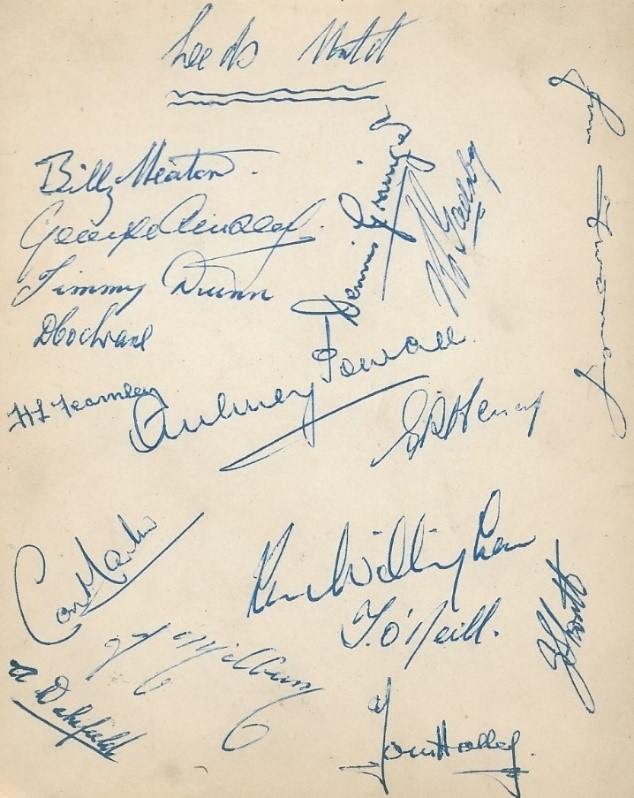 Leeds Utd
Billy Heaton.
George Ainsley
Jimmy Dunn
D Cochrane
Dennis Grainger
H L Fearnley
Aubrey Powell.
G R Henry
Con Martin
Ken Willingham
J. O'Neill.
Milburn
A Wakefield
Tom Holley.